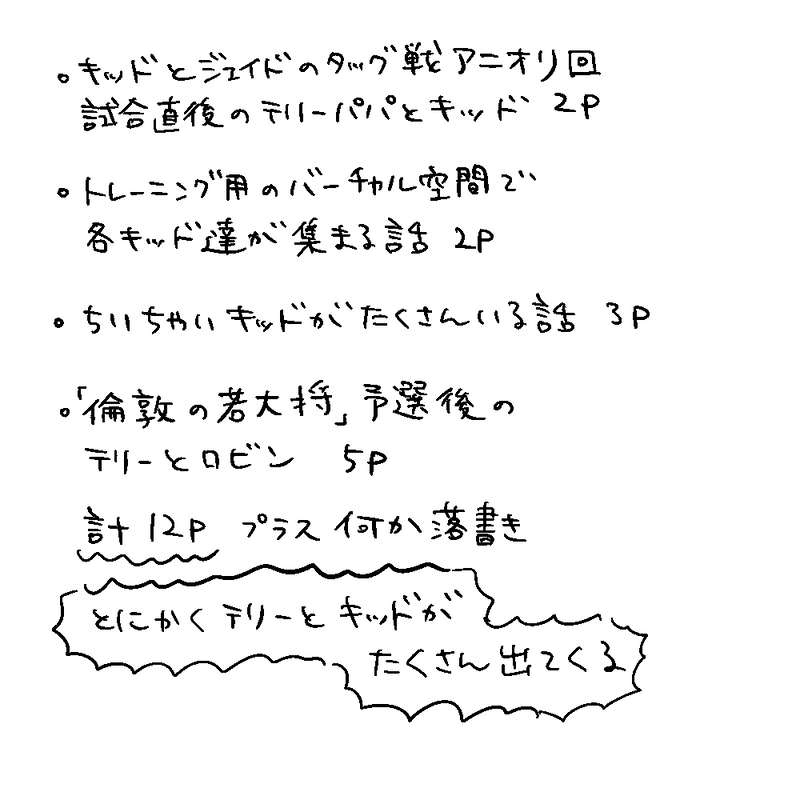 ・キッドとジェイドのタッグ戦アニオリ回
試合直後のテリーパパとキッド 2P
・トレーニング用のバーチャル空間で
各キッド達が集まる話 2P
・ちいちゃいキッドがたくさんいる話 3P
・「倫敦の若大将」予選後の
テリーとロビン 5P
計12P プラス何か落書き
とにかくテリーとキッドが
たくさん出てくる